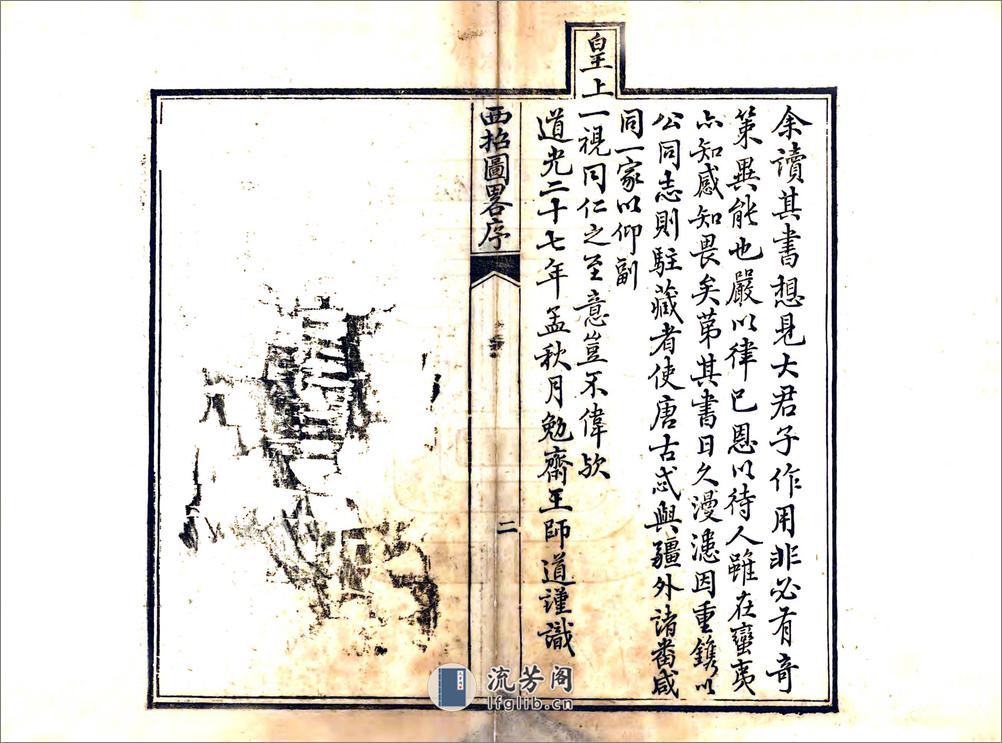 余讀其書想見大君子作用非必有奇
策異能也嚴以律已恩以待人雖在蠻夷
亦知感知畏矣第其書日久漫漶因重鐫以
公同志則駐藏者使唐古忒與疆外諸畨咸
同一家以仰副
皇上一視同仁之至意豈不偉歟
道光二十七年孟秋月勉齋王師道謹識
西招圖畧序
二
流芳阁
lfglib.cn